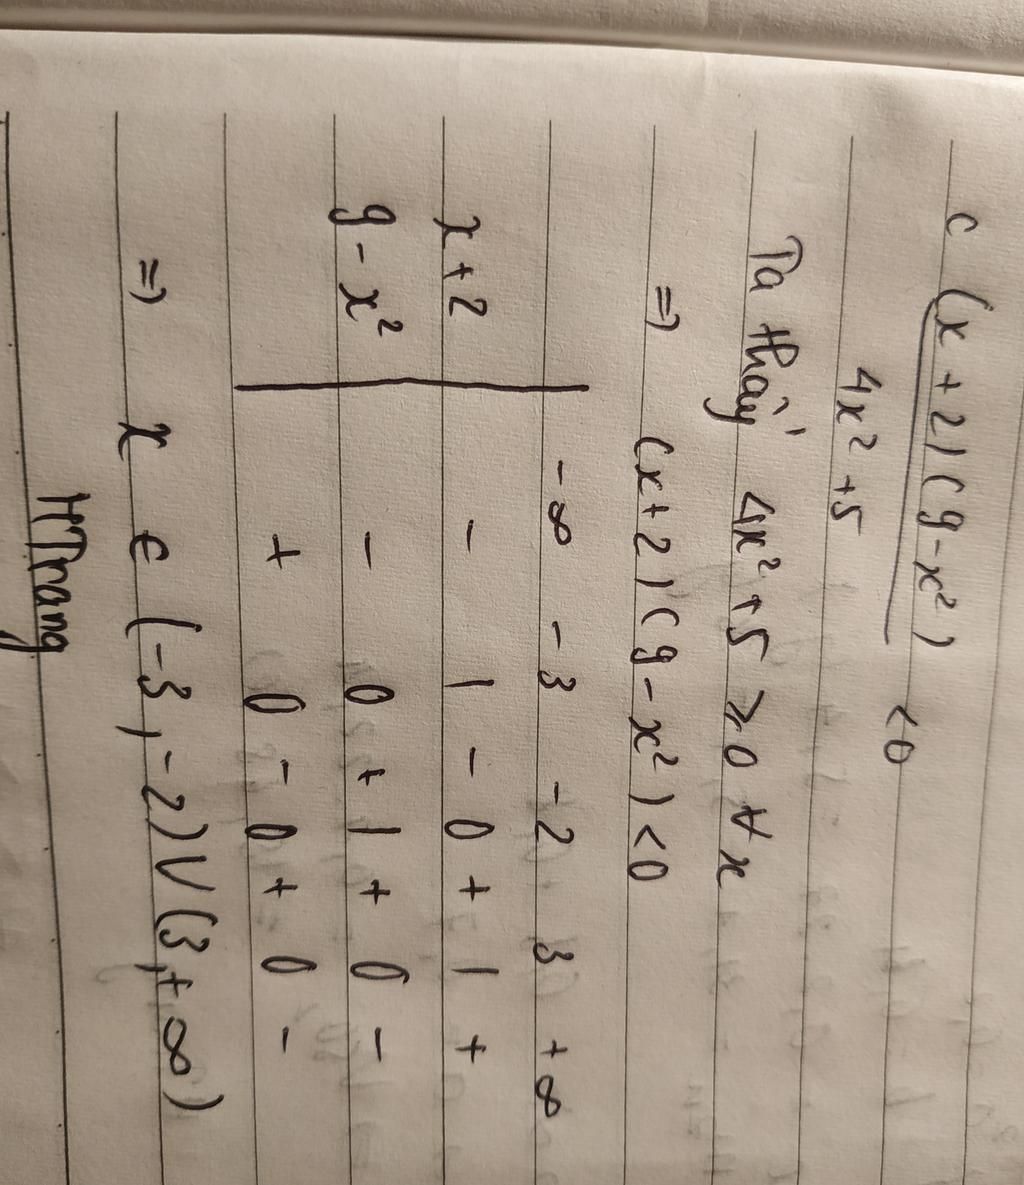 c (x+2)(9-x²) <0
4x²+5
Ta thấy 4x²+5 ⩾0 ∀x
=) (x+2)(9-x²)<0
-∞ -3 -2 3 +∞
x+2 - | - 0 + | +
9-x² - 0 + | + 0 -
+ 0 - 0 + 0 -
=) x ∈ (-3,-2)∪(3,+∞)
HTrang